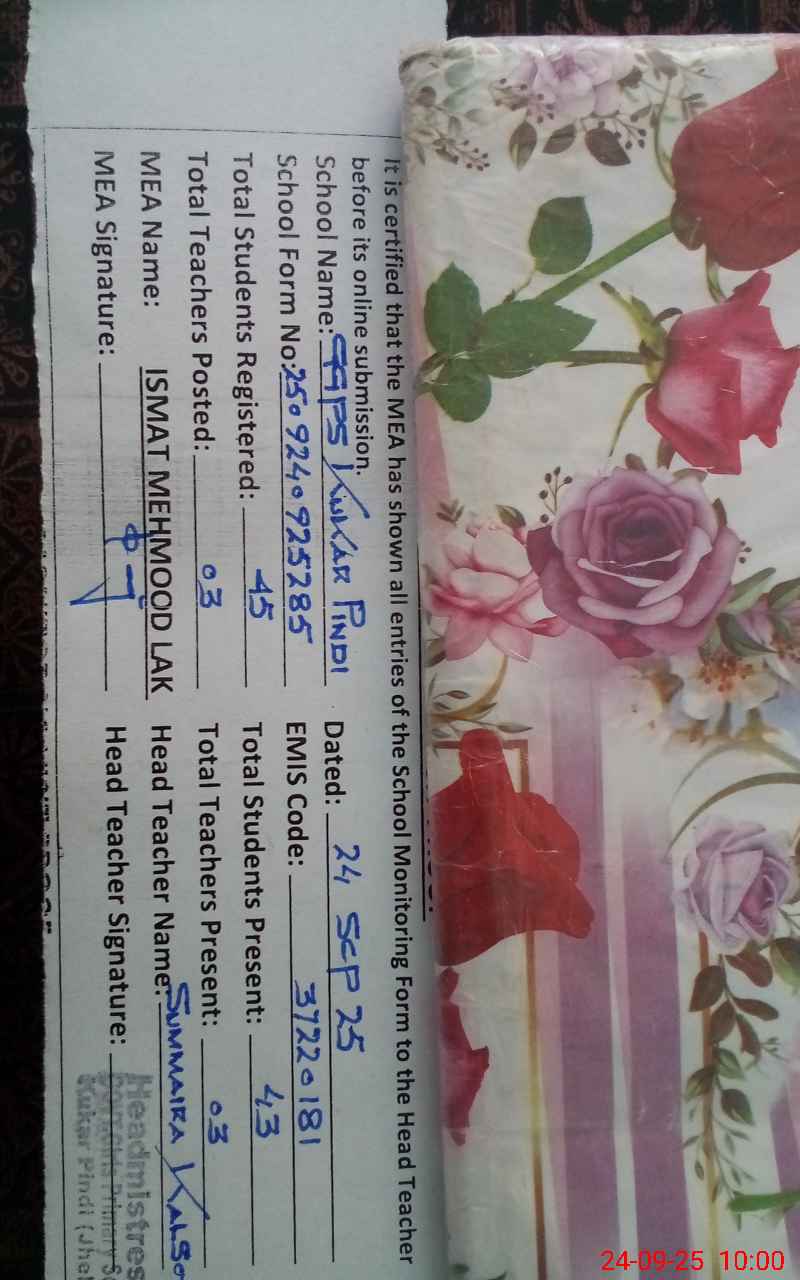 It is certified that the MEA has shown all entries of the School Monitoring Form to the Head Teacher
before its online submission.
School Name: GGPS KUKAR PINDI Dated: 24 SEP 25
School Form No: 2509240925285 EMIS Code: 37220181
Total Students Registered: 45 Total Students Present: 43
Total Teachers Posted: 03 Total Teachers Present: 03
MEA Name: ISMAT MEHMOOD LAK Head Teacher Name: SUMMAIRA
MEA Signature: Head Teacher Signature:
Headmistres
Primary
Kukar Pindi (Jhel
24-09-25 10:00